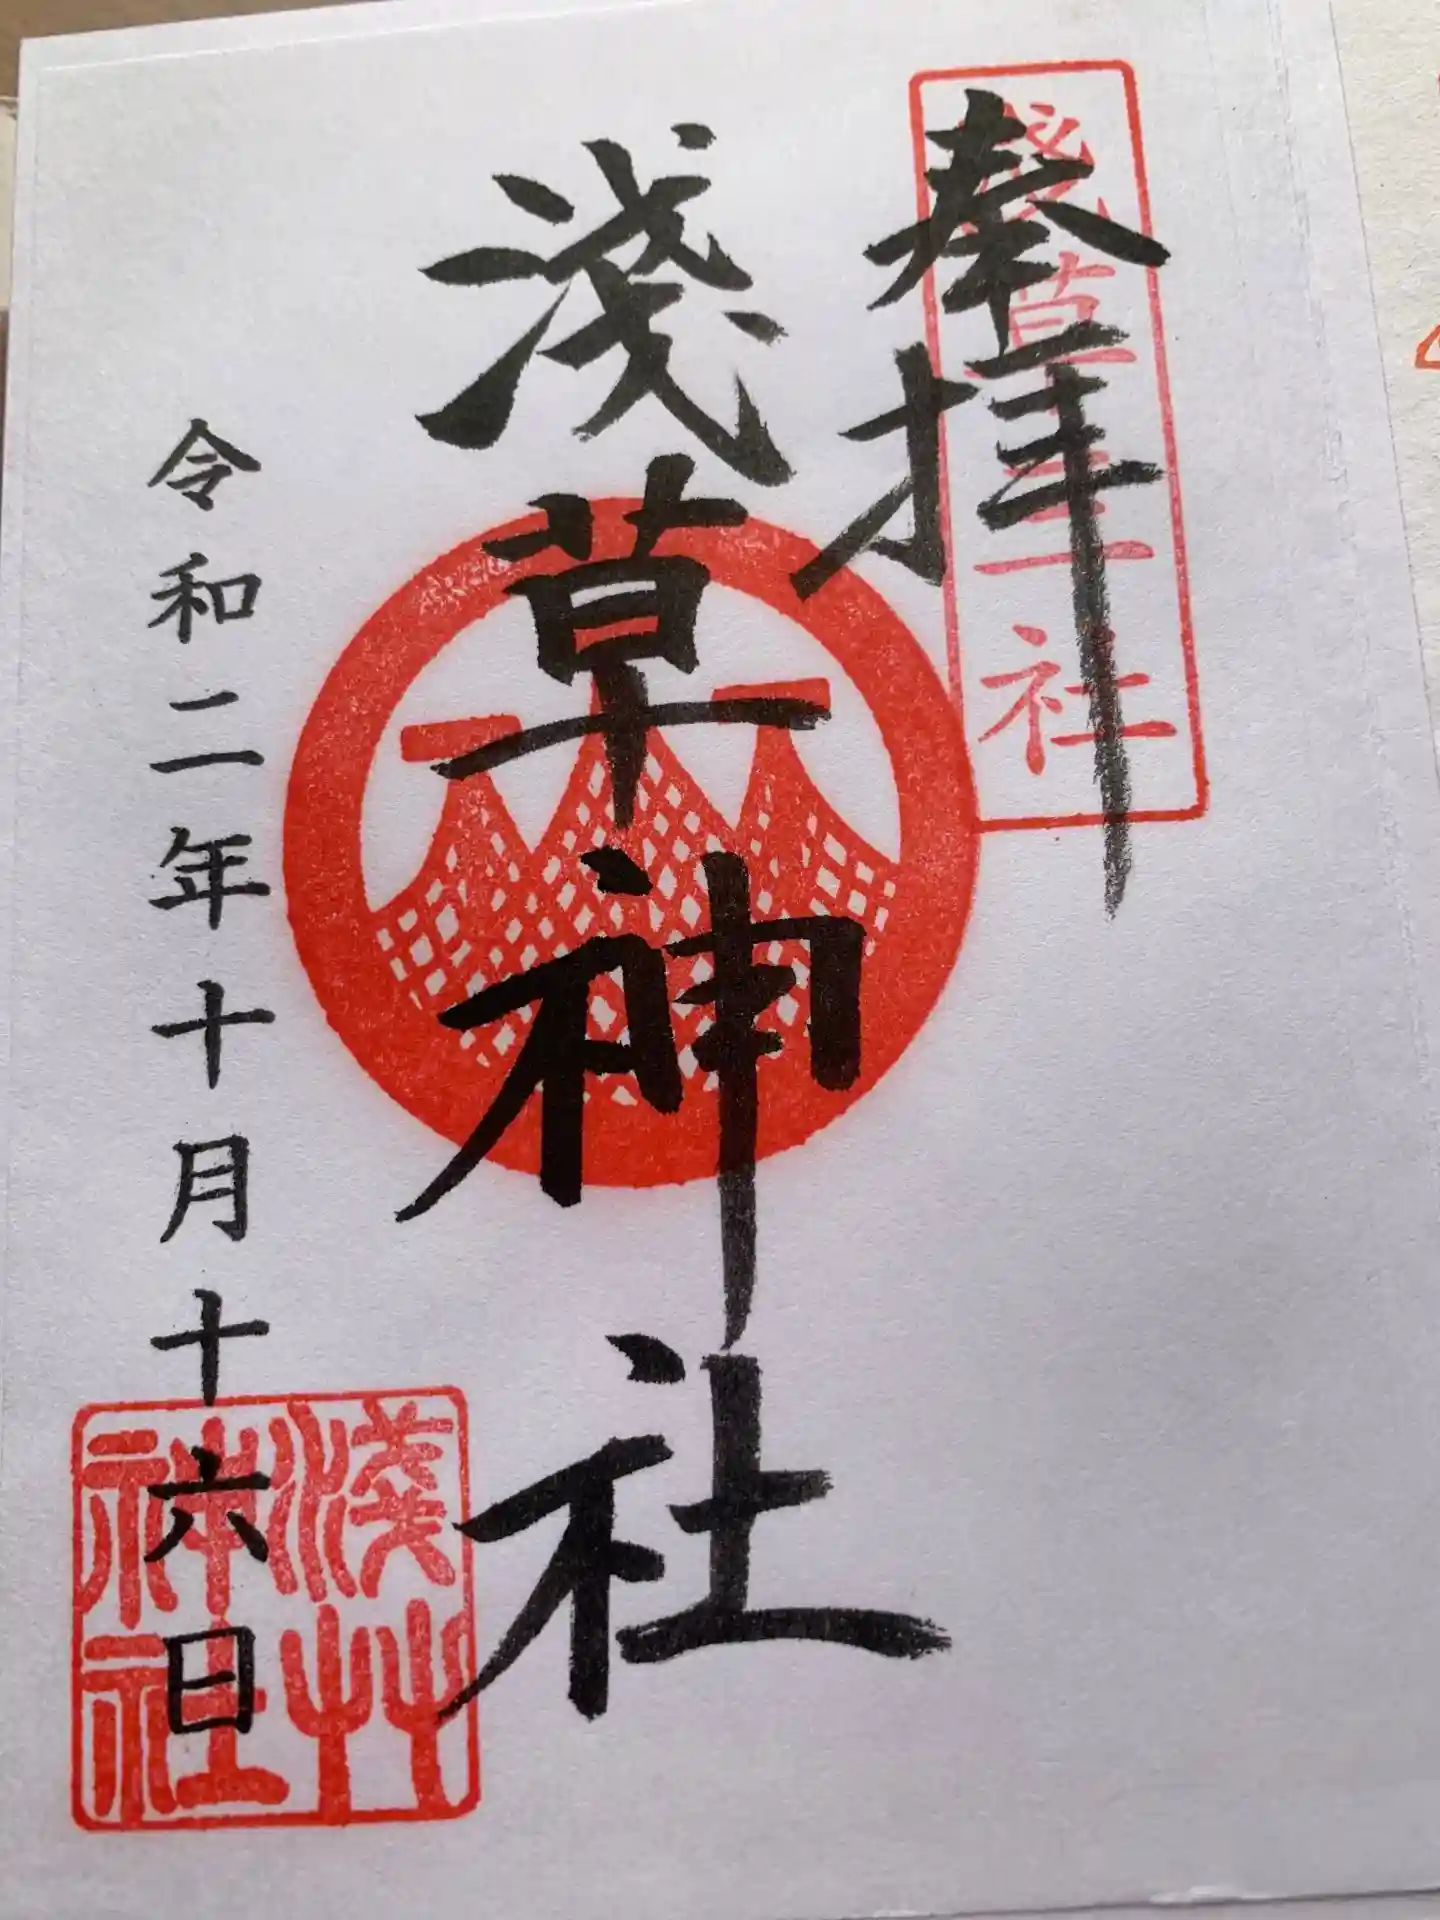 奉拝
淺草三社
淺草神社
令和二年十月十六日
淺艸神社